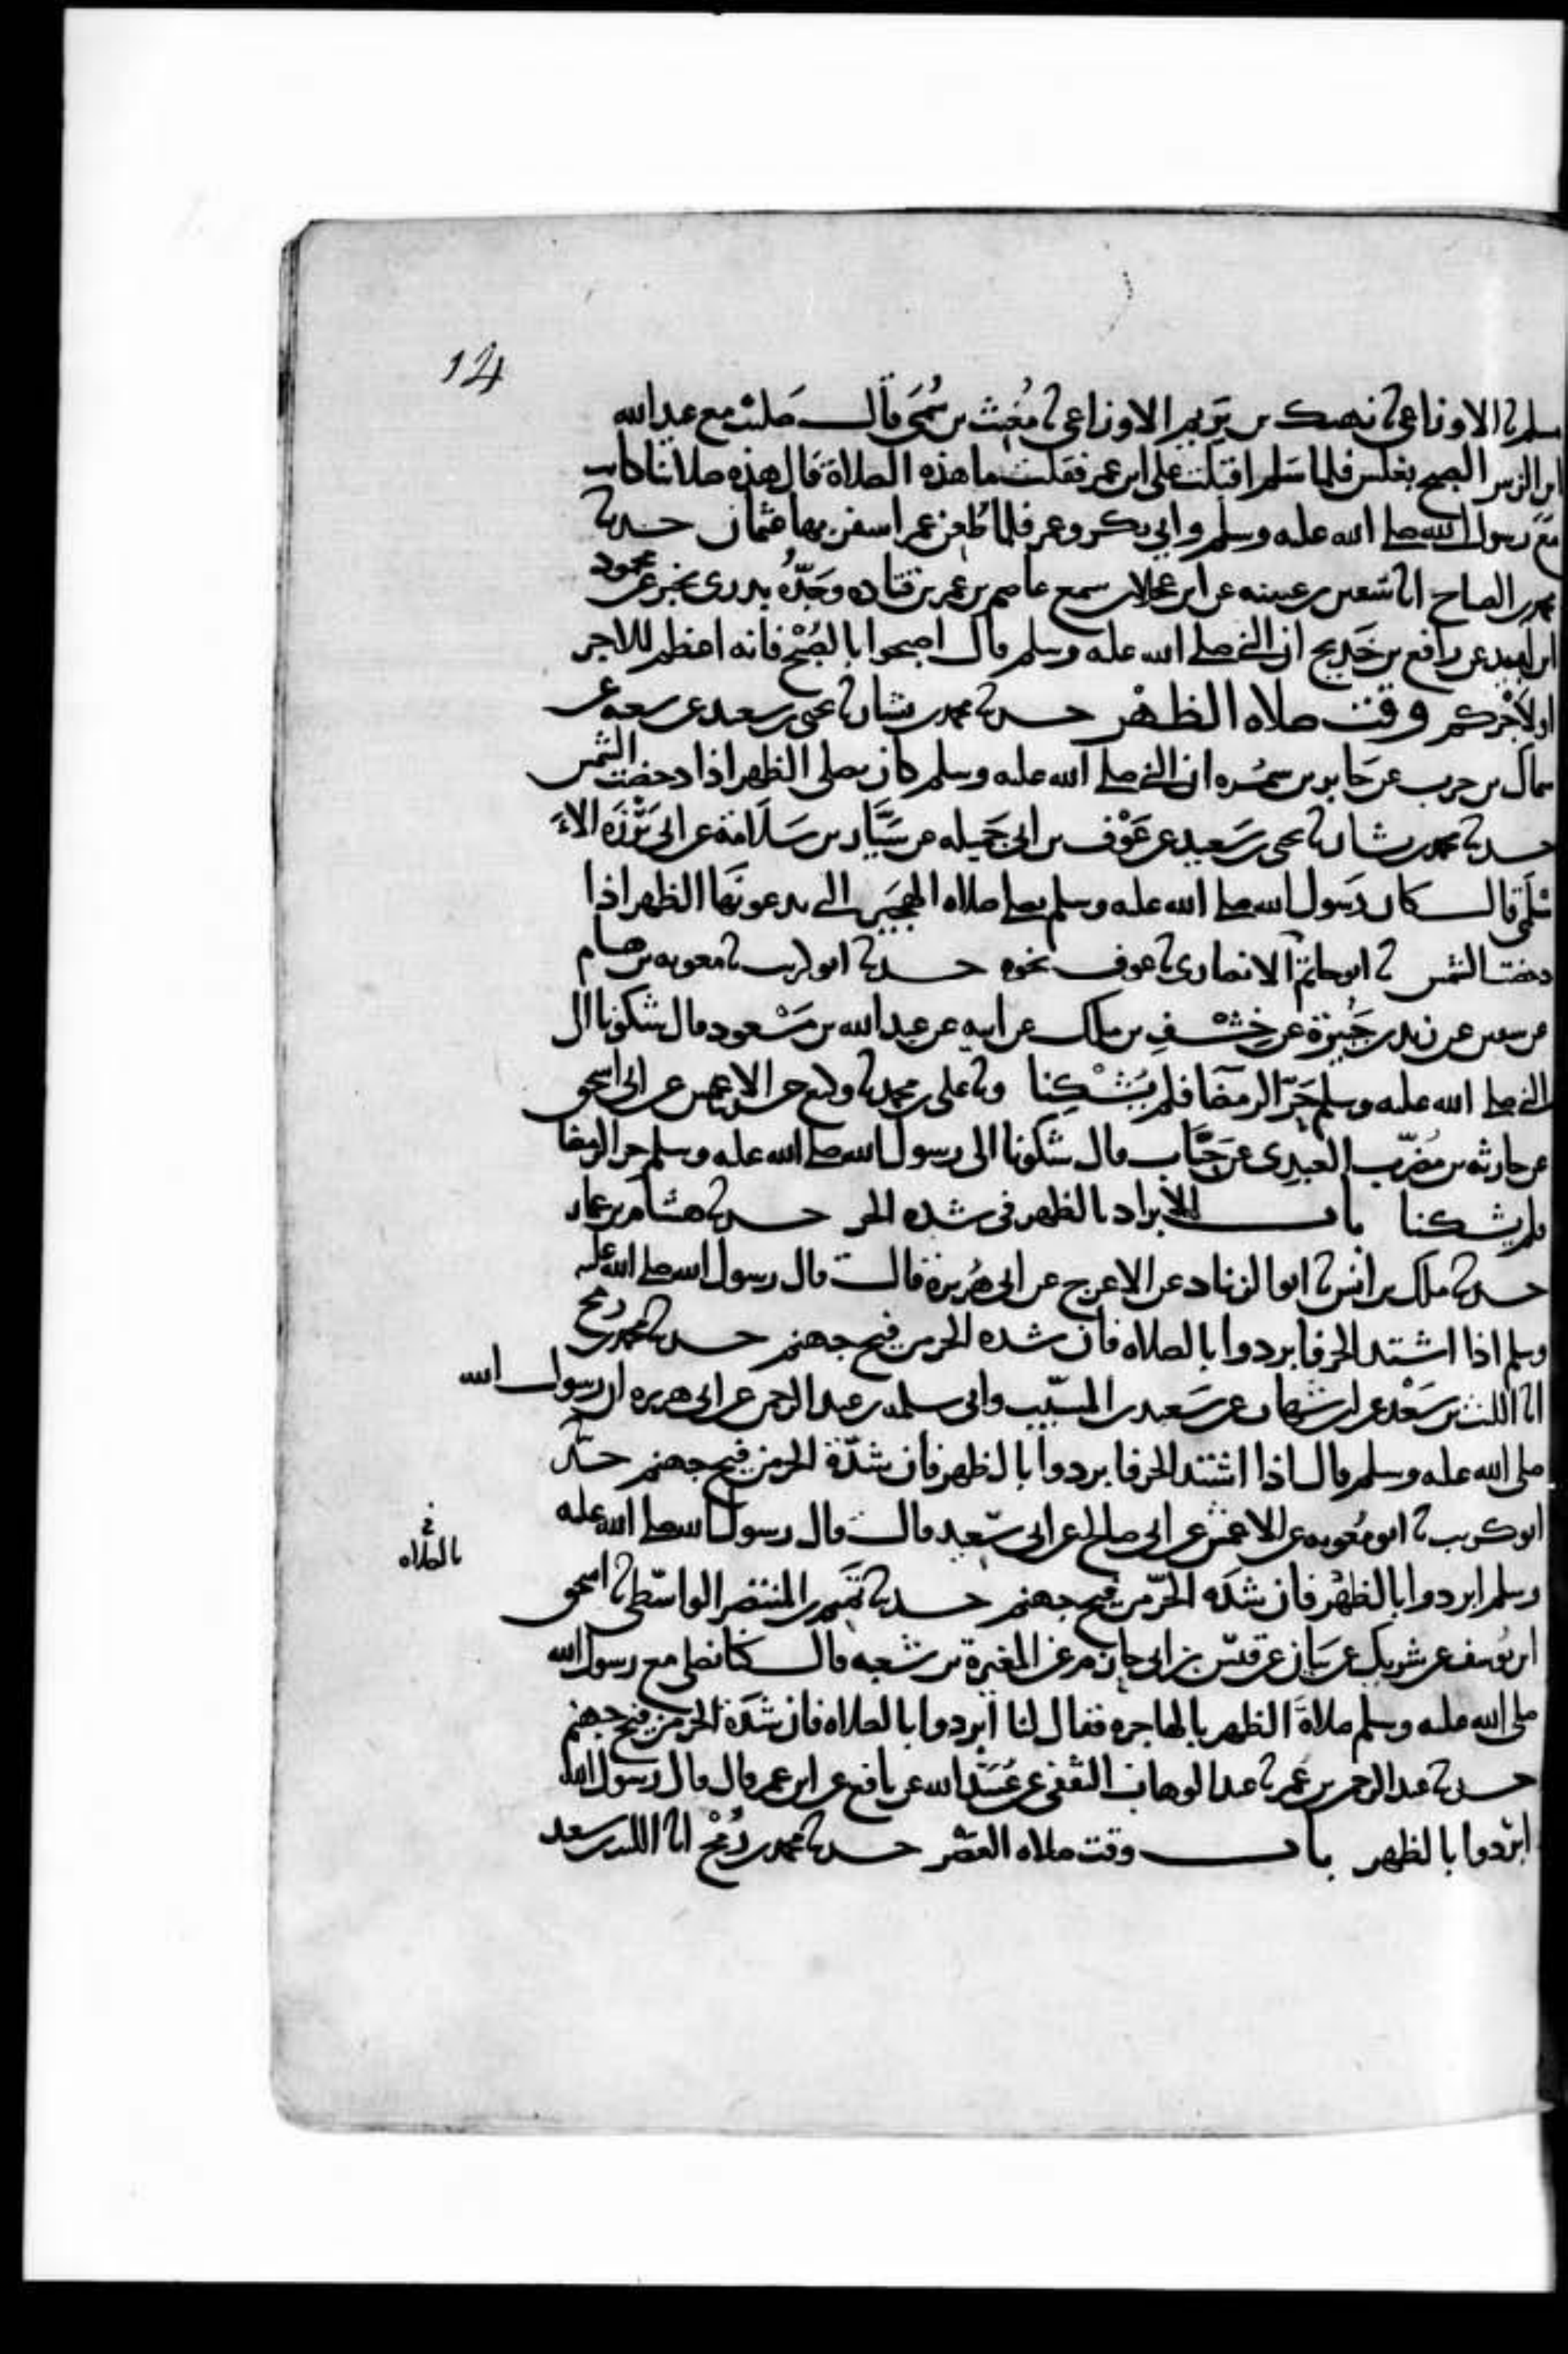 14
مسلم ثا الاوزاعي ثا نهيك بن يريم الاوزاعي ثا مغيث بن سمي قال صليت مع عبد الله
ابن الزبير الصبح بغلس فلما سلم اقبلت على ابن عمر فقلت ما هذه الصلاة قال هذه صلاتنا كانت
مع رسول الله صلى الله عليه وسلم وابي بكر وعمر فلما طعن عمر اسفر بها عثمان حدثنا
محمد بن الصباح انا سفين بن عيينه عن ابن عجلان سمع عاصم بن عمر بن قتاده وجده بدري يخبر عن محمود
ابن لبيد عن رافع بن خديج ان النبي صلى الله عليه وسلم قال اصبحوا بالصبح فانه اعظم للاجر
او لاجركم وقت صلاه الظهر حدثنا محمد بن بشار ثا يحيى بن سعيد عن شعبه عن
سماك بن حرب عن جابر بن سمره ان النبي صلى الله عليه وسلم كان يصلي الظهر اذا دحضت الشمس
حدثنا محمد بن بشار ثا يحيى بن سعيد عن عوف بن ابي جميله عن سيار بن سلامة عن ابي برزه الا
سلمي قال كان رسول الله صلى الله عليه وسلم يصلي صلاه الهجير التي يدعونها الظهر اذا
دحضت الشمس ثا ابو حاتم الانصاري ثا عوف نحوه حدثنا ابو كريب ثا معويه بن هشام
عن سفين عن زيد بن جبيرة عن خشف بن ملك عن ابيه عن عبد الله بن مسعود قال شكونا الى
النبي صلى الله عليه وسلم حر الرمضا فلم يشكنا وثا علي بن محمد ثا وكيع عن الاعمش عن ابي اسحق
عن حارثه بن مضرب العبدي عن خباب قال شكونا الى رسول الله صلى الله عليه وسلم حر الرمضا
فلم يشكنا باب الابراد بالظهر في شده الحر حدثنا هشام بن عمار
حدثنا ملك بن انس ثا ابو الزناد عن الاعرج عن ابي هريرة قال قال رسول الله صلى الله عليه
وسلم اذا اشتد الحر فابردوا بالصلاه فان شده الحر من فيح جهنم حدثنا محمد بن رمح
انا الليث بن سعد عن ابن شهاب عن سعيد بن المسيب وابي سلمه بن عبد الرحمن عن ابي هريره ان رسول الله
صلى الله عليه وسلم قال اذا اشتد الحر فابردوا بالظهر فان شدة الحر من فيح جهنم حدثنا
ابو كريب ثا ابو معويه عن الاعمش عن ابي صالح عن ابي سعيد قال قال رسول الله صلى الله عليه
بالصلاه
وسلم ابردوا بالظهر فان شده الحر من فيح جهنم حدثنا تميم بن المنتصر الواسطي ثا اسحق
ابن يوسف عن شريك عن بيان عن قيس بن ابي حازم عن المغيرة بن شعبه قال كنا نصلي مع رسول الله
صلى الله عليه وسلم صلاة الظهر بالهاجره فقال لنا ابردوا بالصلاه فان شدة الحر من فيح جهنم
حدثنا عبد الرحمن بن عمر ثا عبد الوهاب الثقفي عن عبيد الله عن نافع عن ابن عمر قال قال رسول الله
ابردوا بالظهر باب وقت صلاه العصر حدثنا محمد بن رمح انا الليث بن سعد